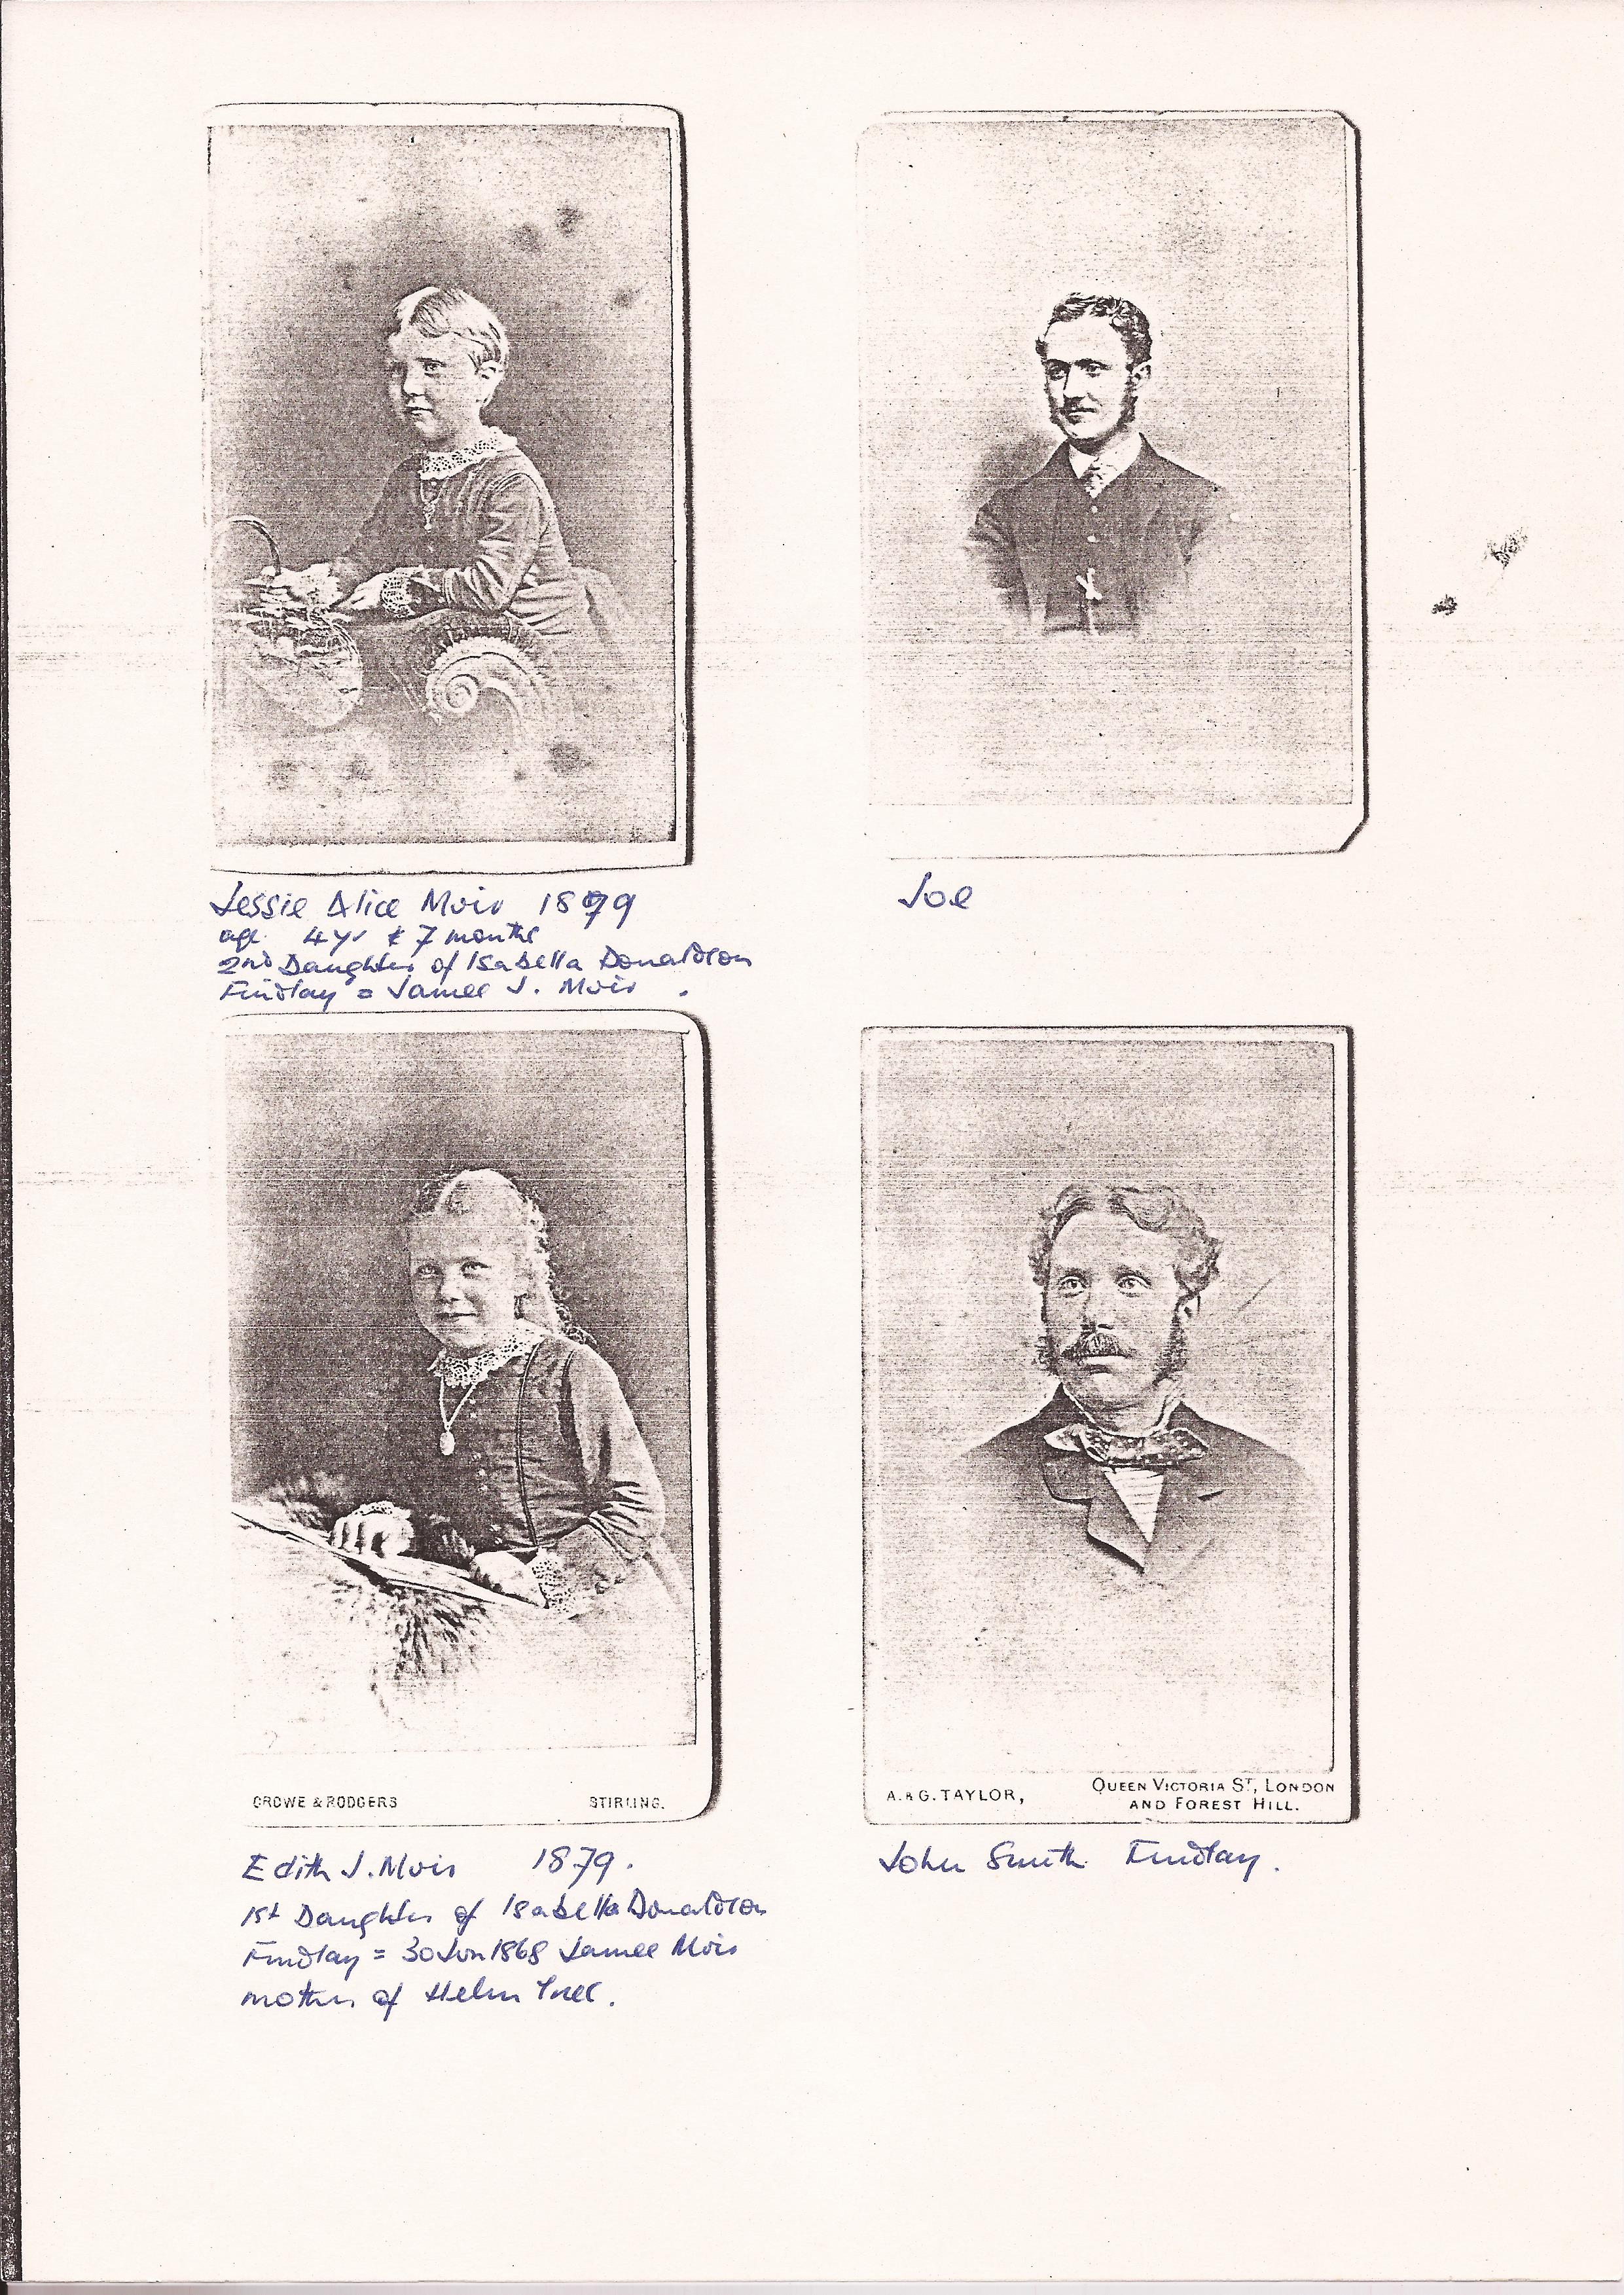 Jessie Alice Moir 1879
age 4 yr & 7 months
2nd Daughter of Isabella Donaldson
Findlay = James J. Moir .
Joe
CROWE & RODGERS STIRLING.
A. & G. TAYLOR, QUEEN VICTORIA ST, LONDON
AND FOREST HILL.
Edith J. Moir 1879.
1st Daughter of Isabella Donaldson
Findlay = 30 Jun 1868 James Moir
mother of Helen
John Smith Findlay.